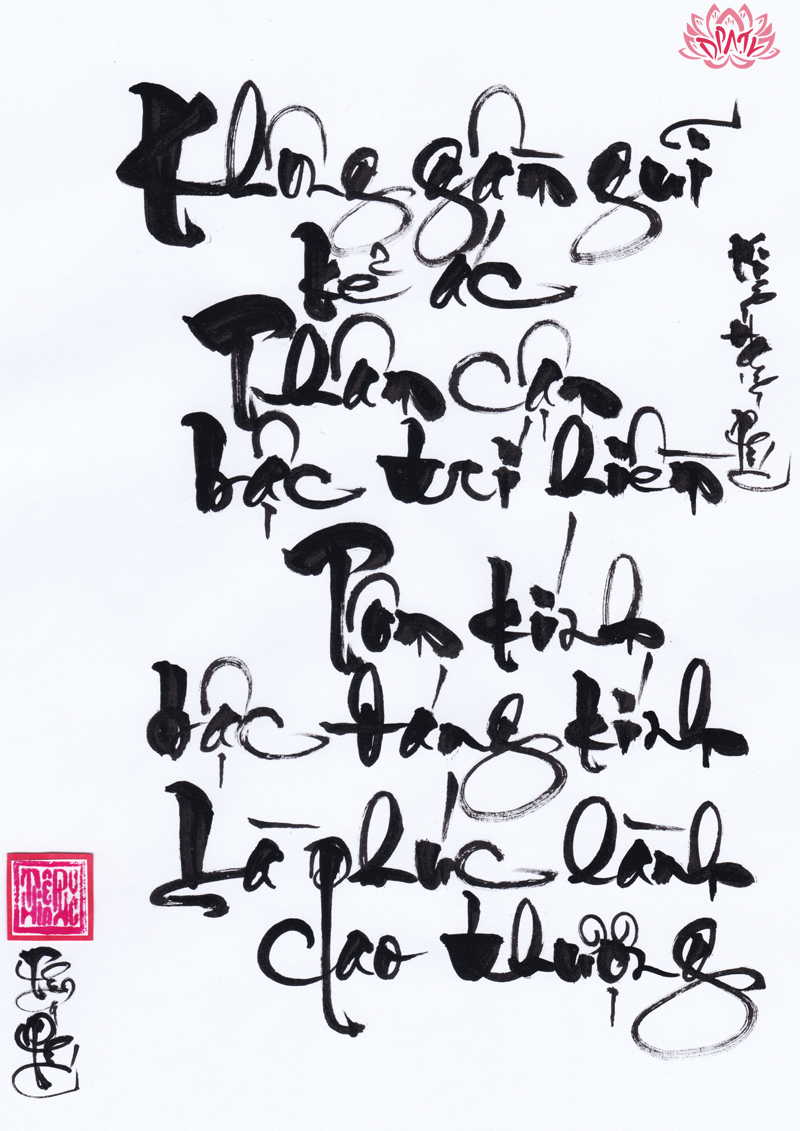 DPATK
Không gần gũi
kẻ ác
Thân cận
bậc trí hiền
Tôn kính
bậc đáng kính
Là phúc lành
cao thượng